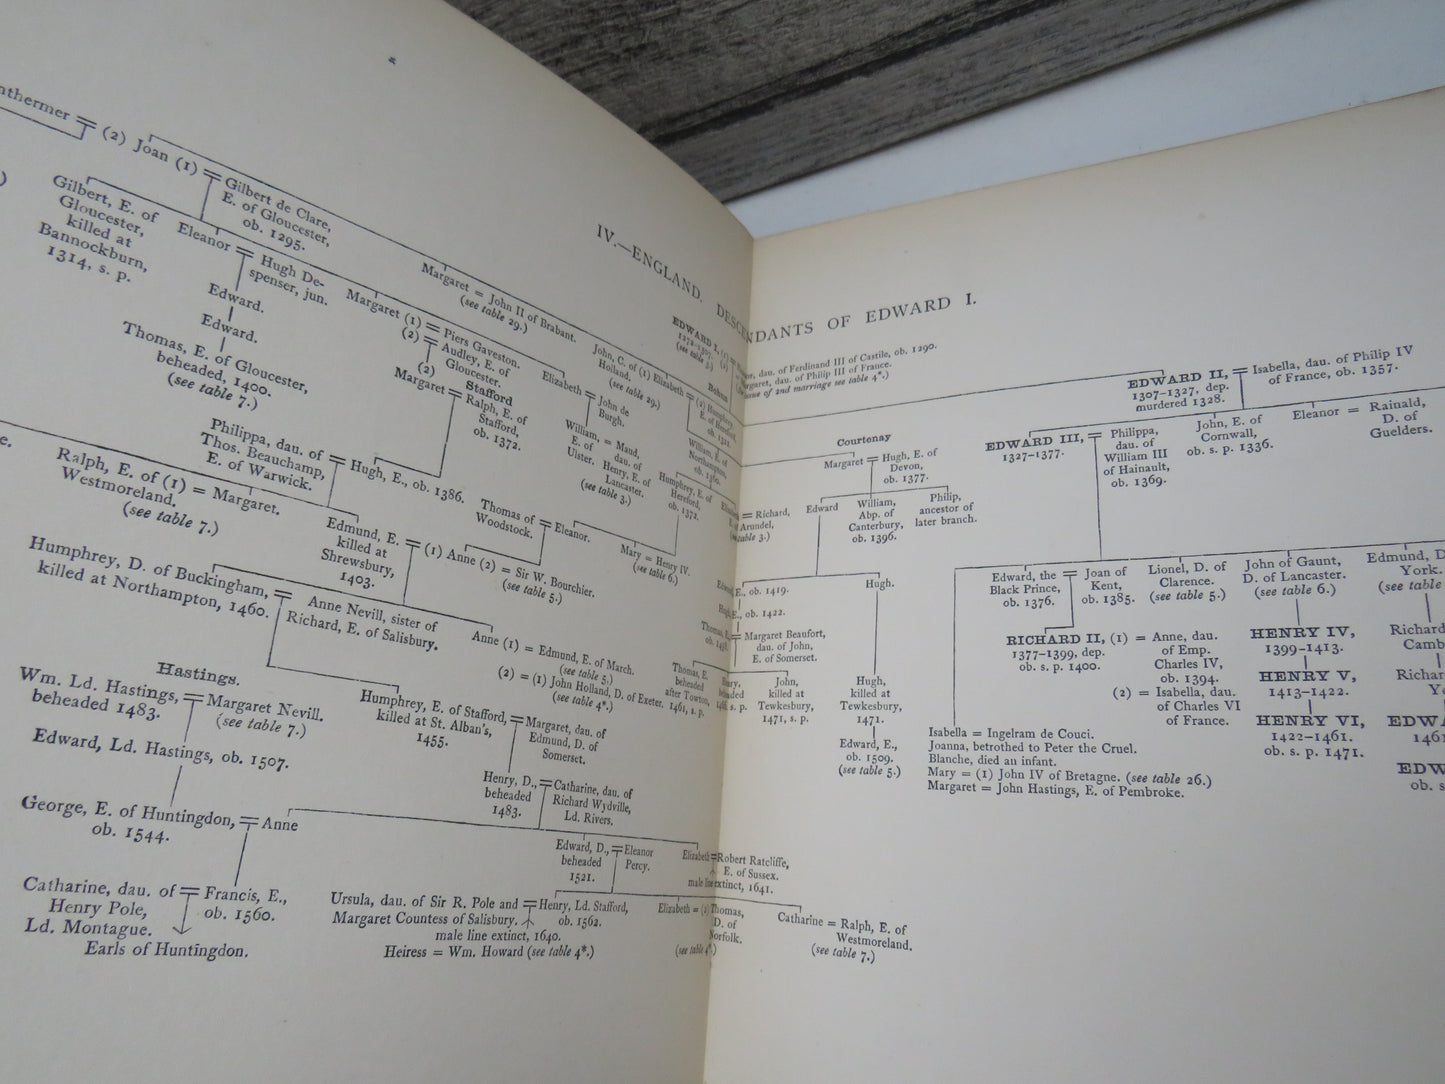 IV.—ENGLAND. DESCENDANTS OF EDWARD I.
nthermer = (2) Joan (1) = Gilbert de Clare,
E. of Gloucester,
ob. 1295.
Gilbert, E. of
Gloucester,
killed at
Bannockburn,
1314, s. p.
Eleanor = Hugh De-
spenser, jun.
Edward.
Edward.
Thomas, E. of Gloucester,
beheaded, 1400.
(see table 7.)
Margaret (1) = Piers Gaveston.
(2) = Audley, E. of
Gloucester.
Margaret = John II of Brabant.
(see table 29.)
(2) Stafford
Margaret = Ralph, E. of
Stafford,
ob. 1372.
Elizabeth = John de
Burgh.
William, = Maud,
E. of dau. of
Ulster. Henry, E. of
Lancaster.
(see table 3.)
John, C. of (1) Elizabeth = (2) Humphrey,
Holland. E. of Hereford,
(see table 29.) ob. 1321.
Bohun
William, E. of
Northampton,
ob. 1360.
Humphrey, E. of
Hereford,
ob. 1372.
EDWARD I, (1) =
1272–1307. (2)
(see table 3.)
dau. of Ferdinand III of Castile, ob. 1290.
Margaret, dau. of Philip III of France.
issue of 2nd marriage see table 4*.)
Philippa, dau. of
Thos. Beauchamp,
E. of Warwick.
= Hugh, E., ob. 1386.
e.
Ralph, E. of (1) = Margaret.
Westmoreland.
(see table 7.)
Edmund, E.
killed at
Shrewsbury,
1403.
= (1) Anne (2) = Sir W. Bourchier.
(see table 5.)
Thomas of = Eleanor.
Woodstock.
Mary = Henry IV.
(see table 6.)
= Richard,
E. of Arundel,
(see table 3.)
Humphrey, D. of Buckingham, = Anne Nevill, sister of
killed at Northampton, 1460. Richard, E. of Salisbury.
Anne (1) = Edmund, E. of March.
(see table 5.)
(2) = (1) John Holland, D. of Exeter.
(see table 4*.)
Hastings.
Wm. Ld. Hastings, = Margaret Nevill.
beheaded 1483. (see table 7.)
Edward, Ld. Hastings, ob. 1507.
George, E. of Huntingdon, = Anne
ob. 1544.
Catharine, dau. of = Francis, E.,
Henry Pole, ob. 1560.
Ld. Montague.
Earls of Huntingdon.
Humphrey, E. of Stafford, = Margaret, dau. of
killed at St. Alban's, Edmund, D. of
1455. Somerset.
Henry, D., = Catharine, dau. of
beheaded Richard Wydville,
1483. Ld. Rivers.
Edward, D., = Eleanor
beheaded Percy.
1521.
Elizabeth = Robert Ratcliffe,
E. of Sussex.
male line extinct, 1641.
Ursula, dau. of Sir R. Pole and = Henry, Ld. Stafford,
Margaret Countess of Salisbury. ob. 1562.
male line extinct, 1640.
Heiress = Wm. Howard (see table 4*.)
Elizabeth = (2) Thomas,
D. of
Norfolk.
(see table 4*.)
Catharine = Ralph, E. of
Westmoreland.
(see table 7.)
Courtenay
Margaret = Hugh, E. of
Devon,
ob. 1377.
Edward
William,
Abp. of
Canterbury,
ob. 1396.
Philip,
ancestor of
later branch.
Edward, E., ob. 1419.
Hugh, E., ob. 1422.
Thomas, E. = Margaret Beaufort,
ob. 1458. dau. of John,
E. of Somerset.
Hugh.
Thomas, E.
beheaded
after Towton,
1461, s. p.
Henry,
beheaded
1466, s. p.
John,
killed at
Tewkesbury,
1471, s. p.
Hugh,
killed at
Tewkesbury,
1471.
Edward, E.,
ob. 1509.
(see table 5.)
EDWARD II, = Isabella, dau. of Philip IV
1307–1327, dep. of France, ob. 1357.
murdered 1328.
EDWARD III, = Philippa,
1327–1377. dau. of
William III
of Hainault,
ob. 1369.
John, E. of
Cornwall,
ob. s. p. 1336.
Eleanor = Rainald,
D. of
Guelders.
Edward, the = Joan of
Black Prince, Kent,
ob. 1376. ob. 1385.
Lionel, D. of
Clarence.
(see table 5.)
John of Gaunt,
D. of Lancaster.
(see table 6.)
Edmund, D.
York.
(see table
RICHARD II, (1) = Anne, dau.
1377–1399, dep. of Emp.
ob. s. p. 1400. Charles IV,
ob. 1394.
(2) = Isabella, dau.
of Charles VI
of France.
HENRY IV,
1399–1413.
HENRY V,
1413–1422.
HENRY VI,
1422–1461.
ob. s. p. 1471.
Richard
Camb
Richar
Yo
EDWA
1461
EDW
ob. s
Isabella = Ingelram de Couci.
Joanna, betrothed to Peter the Cruel.
Blanche, died an infant.
Mary = (1) John IV of Bretagne. (see table 26.)
Margaret = John Hastings, E. of Pembroke.